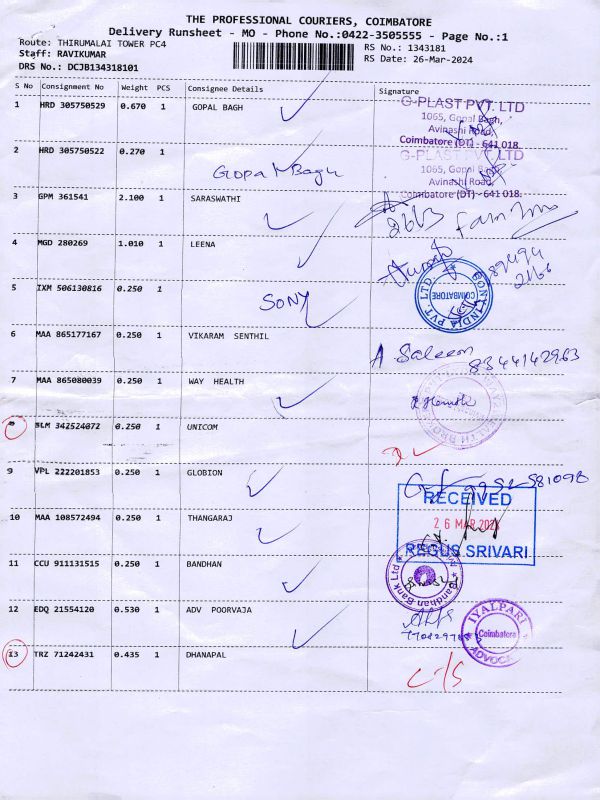 THE PROFESSIONAL COURIERS, COIMBATORE
Delivery Runsheet - MO - Phone No.:0422-3505555 - Page No.:1
Route: THIRUMALAI TOWER PC4
RS No.: 1343181
Staff: RAVIKUMAR
RS Date: 26-Mar-2024
DRS No.: DCJB134318101
S No Consignment No Weight PCS Consignee Details Signature
1 HRD 305750529 0.670 1 GOPAL BAGH
G-PLAST PVT. LTD
1065, Gopal Bagh,
Avinashi Road,
Coimbatore (DT) - 641 018.
2 HRD 305750522 0.270 1
Gopal Bagh
G-PLAST PVT. LTD
1065, Gopal Bagh,
Avinashi Road,
Coimbatore (DT) - 641 018.
3 GPM 361541 2.100 1 SARASWATHI
8663
4 MGD 280269 1.010 1 LEENA
89494
5 IXM 506130816 0.250 1
SONY
SONY INDIA PVT. LTD
COIMBATORE
6 MAA 865177167 0.250 1 VIKARAM SENTHIL
A Saleem 8344142963
7 MAA 865080039 0.250 1 WAY HEALTH
8 SLM 342524072 0.250 1 UNICOM
9 VPL 222201853 0.250 1 GLOBION
RECEIVED
26 MAR
REGUS SRIVARI
10 MAA 108572494 0.250 1 THANGARAJ
11 CCU 911131515 0.250 1 BANDHAN
Bandhan Bank Ltd
12 EDQ 21554120 0.530 1 ADV POORVAJA
IYALPARI
Coimbatore
ADVOCA
13 TRZ 71242431 0.435 1 DHANAPAL
C/S